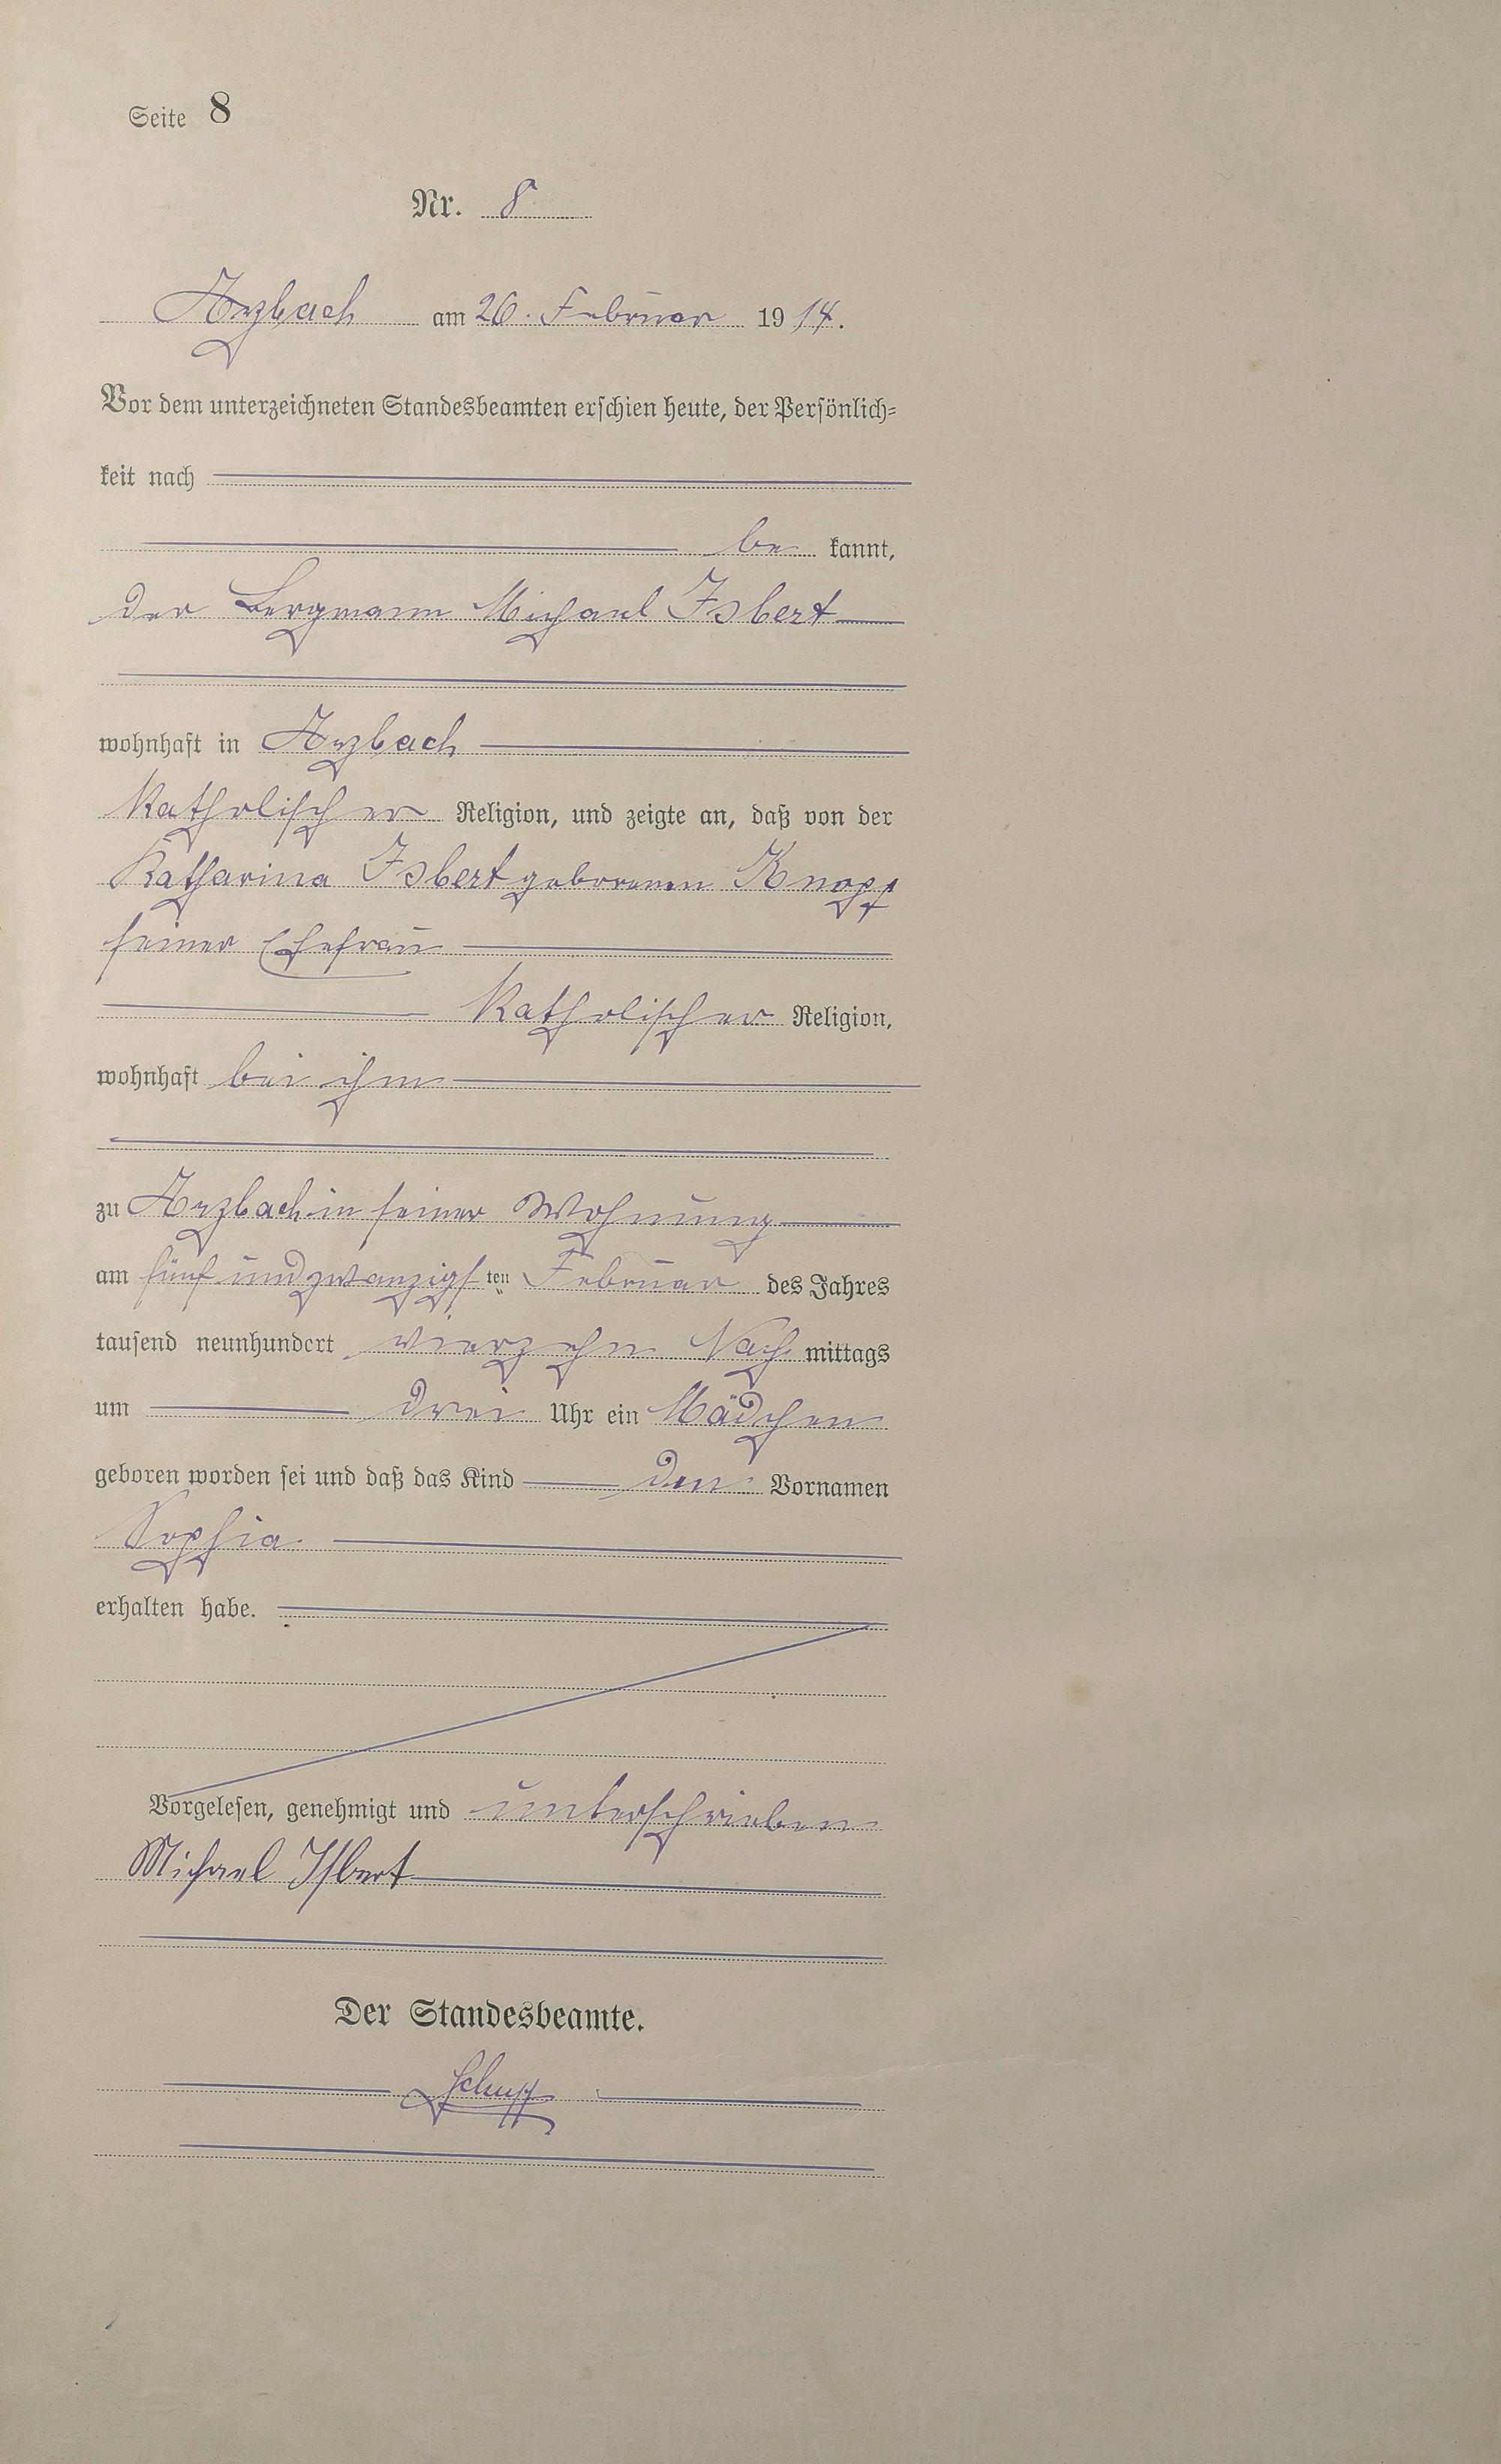 Seite 8
Nr. 8
Arzbach am 26. Februar 1914.
Vor dem unterzeichneten Standesbeamten erschien heute, der Persönlich-
keit nach
be kannt,
der Bergmann Michael Isbert
wohnhaft in Arzbach
Katholischer Religion, und zeigte an, daß von der
Katharina Isbert geborenen Knopp
seiner Ehefrau
Katholischer Religion,
wohnhaft bei ihm
zu Arzbach in seiner Wohnung
am fünf und zwanzigsten Februar des Jahres
tausend neunhundert vierzehn Nach mittags
um drei Uhr ein Mädchen
geboren worden sei und daß das Kind den Vornamen
Sophia
erhalten habe.
Vorgelesen, genehmigt und unterschrieben
Michael Isbert
Der Standesbeamte.